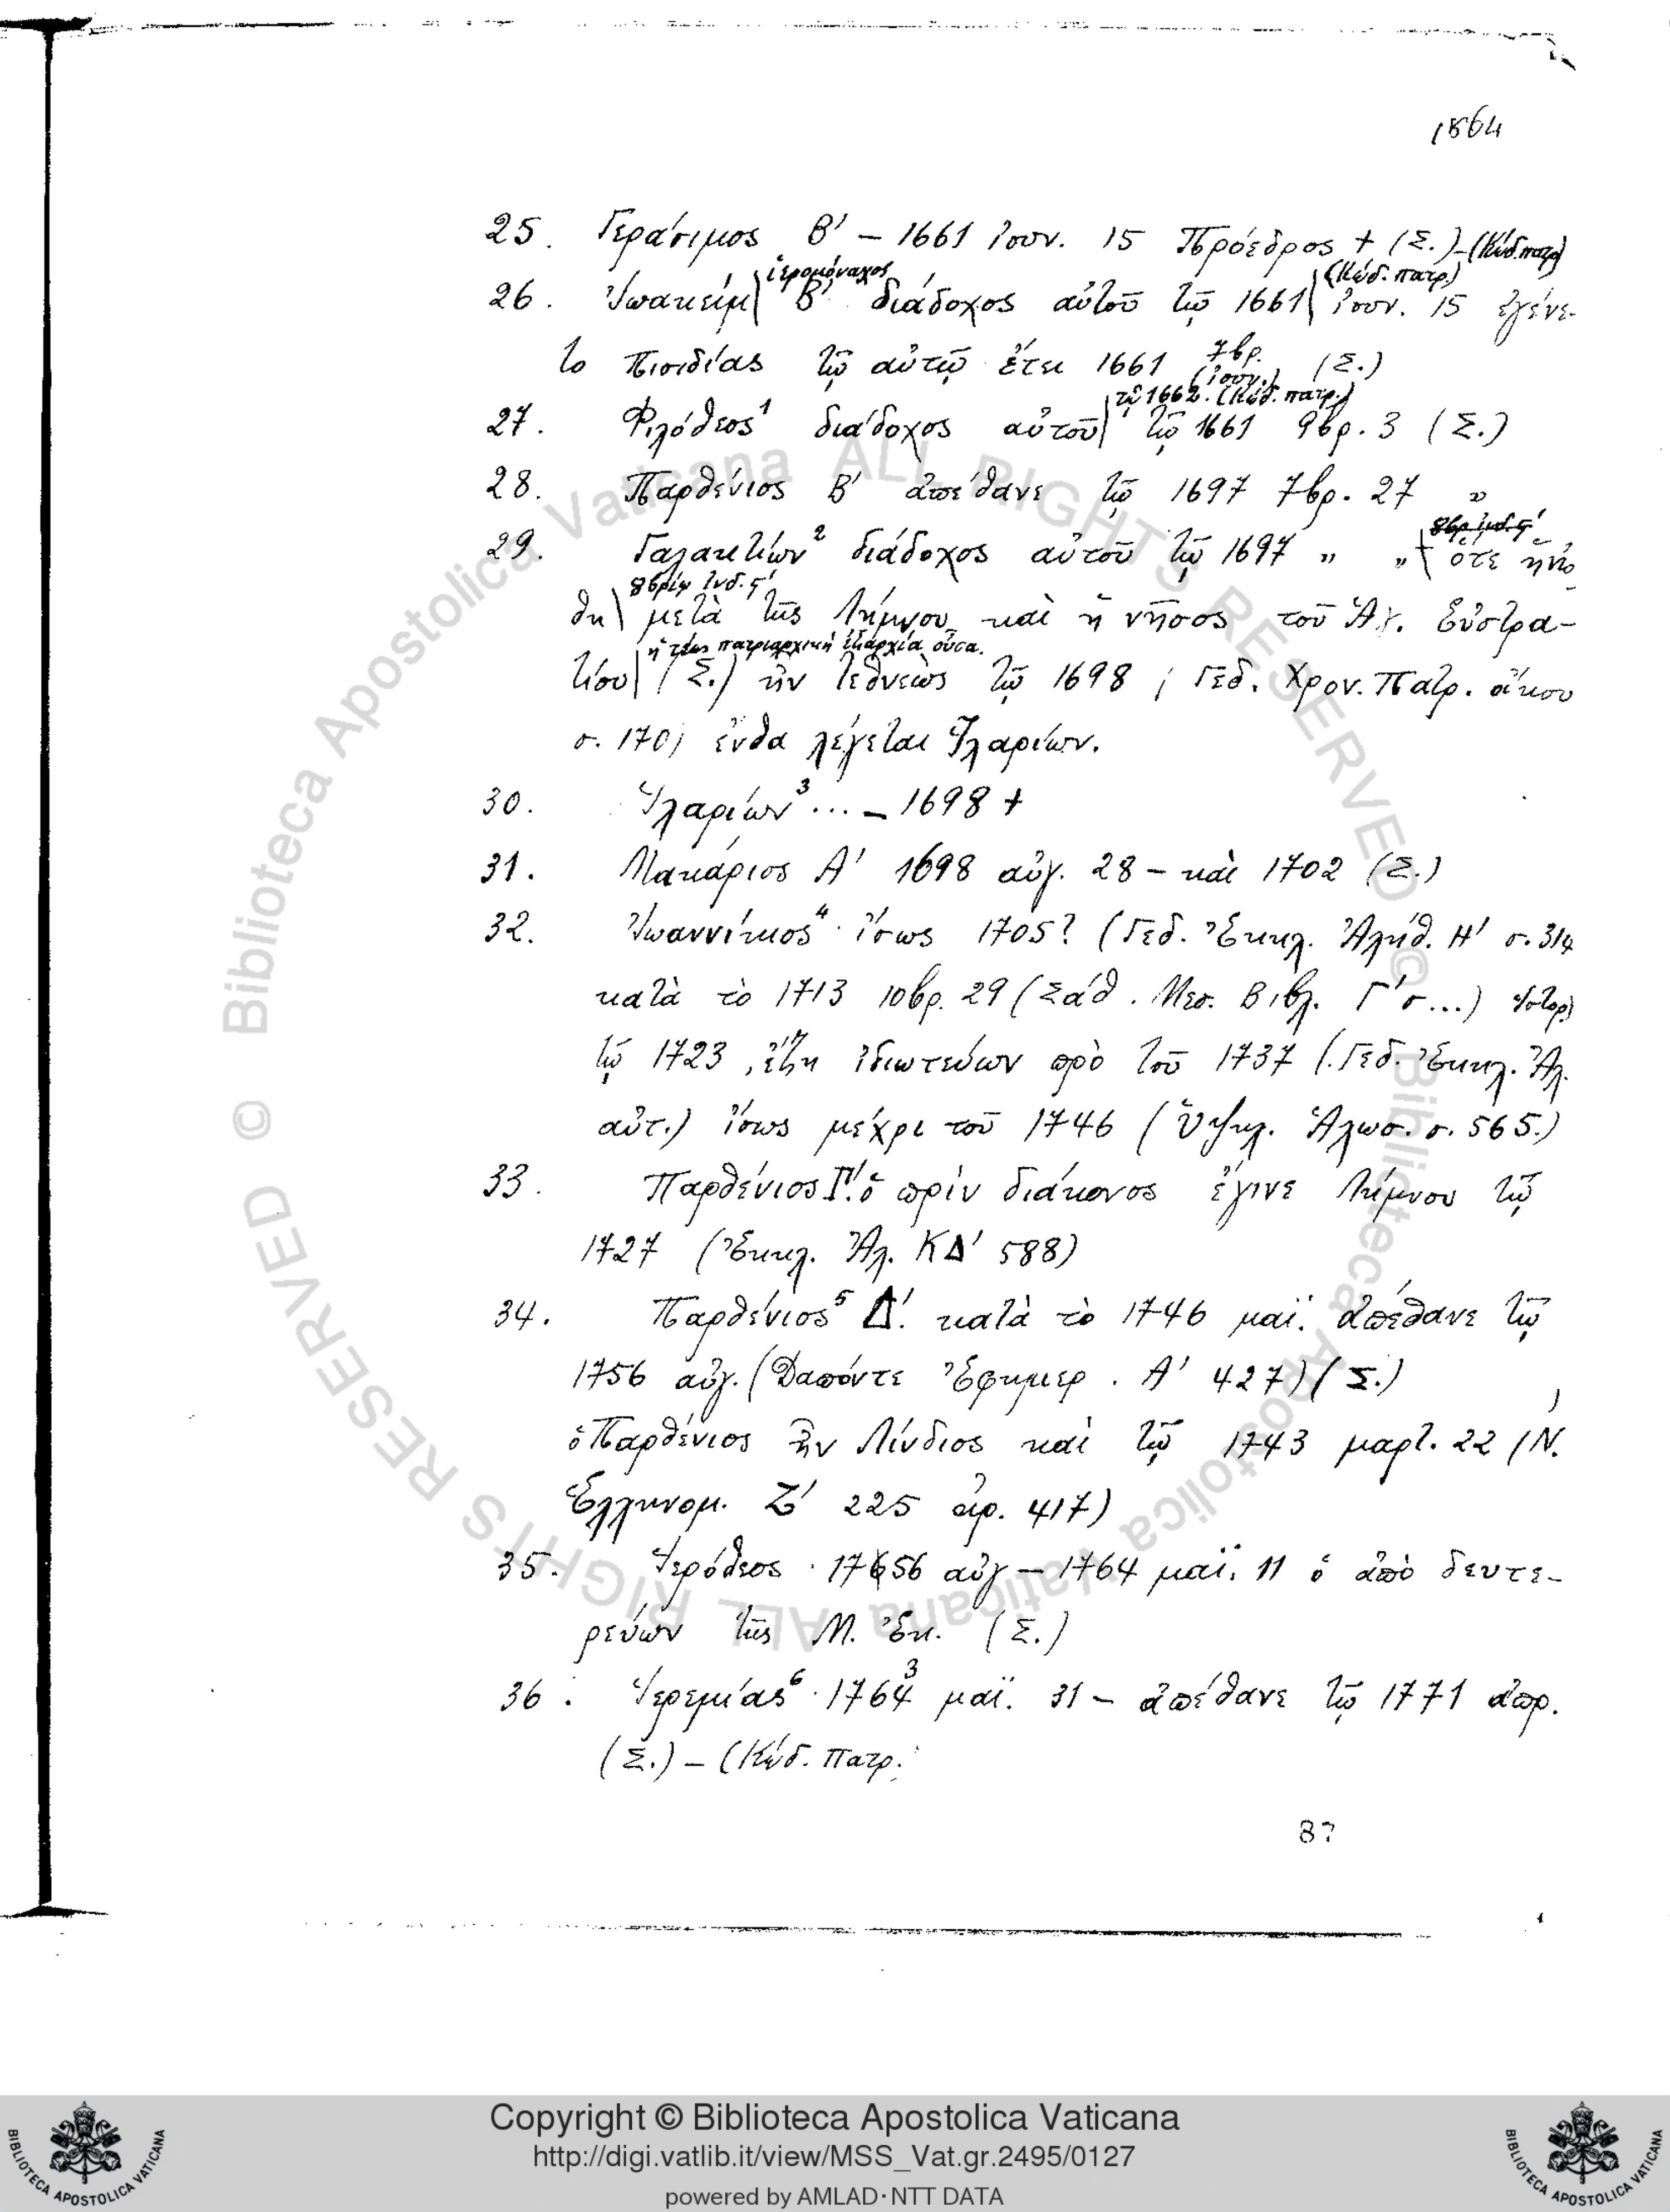 1864
25. Γεράσιμος Β' – 1661 ἰουν. 15 Πρόεδρος + (Σ.) – (Κώδ. πατρ)
ἱερομόναχος (Κώδ. πατρ)
26. Ἰωακείμ Β' διάδοχος αὐτοῦ τῷ 1661 ἰουν. 15 ἐγένε-
το Πισιδίας τῷ αὐτῷ ἔτει 1661 7βρ. (Σ.)
(ἰουν.)
τῷ 1662. (Κώδ. πατρ.)
27. Φιλόθεος¹ διάδοχος αὐτοῦ τῷ 1661 9βρ. 3 (Σ.)
28. Παρθένιος Β' ἀπέθανε τῷ 1697 7βρ. 27 "
8βρ ἰνδ. ς'
29. Γαλακτίων² διάδοχος αὐτοῦ τῷ 1697 " " + ὅτε ἡνώ
8βρίῳ ἰνδ. ς'
θη μετὰ τῆς Λήμνου καὶ ἡ νῆσος τοῦ Ἁγ. Εὐστρα-
ἡ τέως πατριαρχικὴ ἐξαρχία οὖσα.
τίου (Σ.) ἦν τεθνεὼς τῷ 1698 ; Γεδ. Χρον. Πατρ. οἴκου
σ. 170; ἔνθα λέγεται Ἱλαρίων.
30. Ἱλαρίων³ ... – 1698 +
31. Μακάριος Α' 1698 αὐγ. 28 – καὶ 1702 (Σ.)
32. Ἰωαννίκιος⁴ · ἴσως 1705? (Γεδ. Ἐκκλ. Ἀλήθ. Η' σ. 314
κατὰ τὸ 1713 10βρ. 29 (Σάθ. Μεσ. Βιβλ. Γ' σ...)
τῷ 1723, ἔζη ἰδιωτεύων πρὸ τοῦ 1737 (Γεδ. Ἐκκλ. Ἀλ.
αὐτ.) ἴσως μέχρι τοῦ 1746 (Ὑψηλ. Ἁλωσ. σ. 565.)
33. Παρθένιος Γ'. ὁ πρὶν διάκονος ἔγινε Λήμνου τῷ
1727 (Ἐκκλ. Ἀλ. ΚΔ' 588)
34. Παρθένιος⁵ Δ'. κατὰ τὸ 1746 μαΐ. ἀπέθανε τῷ
1756 αὐγ. (Δαπόντε Ἐφημερ. Α' 427) (Σ.)
ὁ Παρθένιος ἦν Λίνδιος καὶ τῷ 1743 μαρτ. 22 (Ν.
Ἑλληνομ. Ζ' 225 ἀρ. 417)
35. Ἱερόθεος · 17656 αὐγ – 1764 μαΐ. 11 ὁ ἀπὸ δευτε-
ρεύων τῆς Μ. Ἐκ. (Σ.)
3
36. Ἱερεμίας⁶ · 1764 μαΐ. 31 – ἀπέθανε τῷ 1771 ἀπρ.
(Σ.) – (Κώδ. πατρ.
87
© Biblioteca Apostolica Vaticana ALL RIGHTS RESERVED
© Biblioteca Apostolica Vaticana ALL RIGHTS RESERVED
Copyright © Biblioteca Apostolica Vaticana
http://digi.vatlib.it/view/MSS_Vat.gr.2495/0127
powered by AMLAD·NTT DATA
BIBLIOTECA APOSTOLICA VATICANA
BIBLIOTECA APOSTOLICA VATICANA